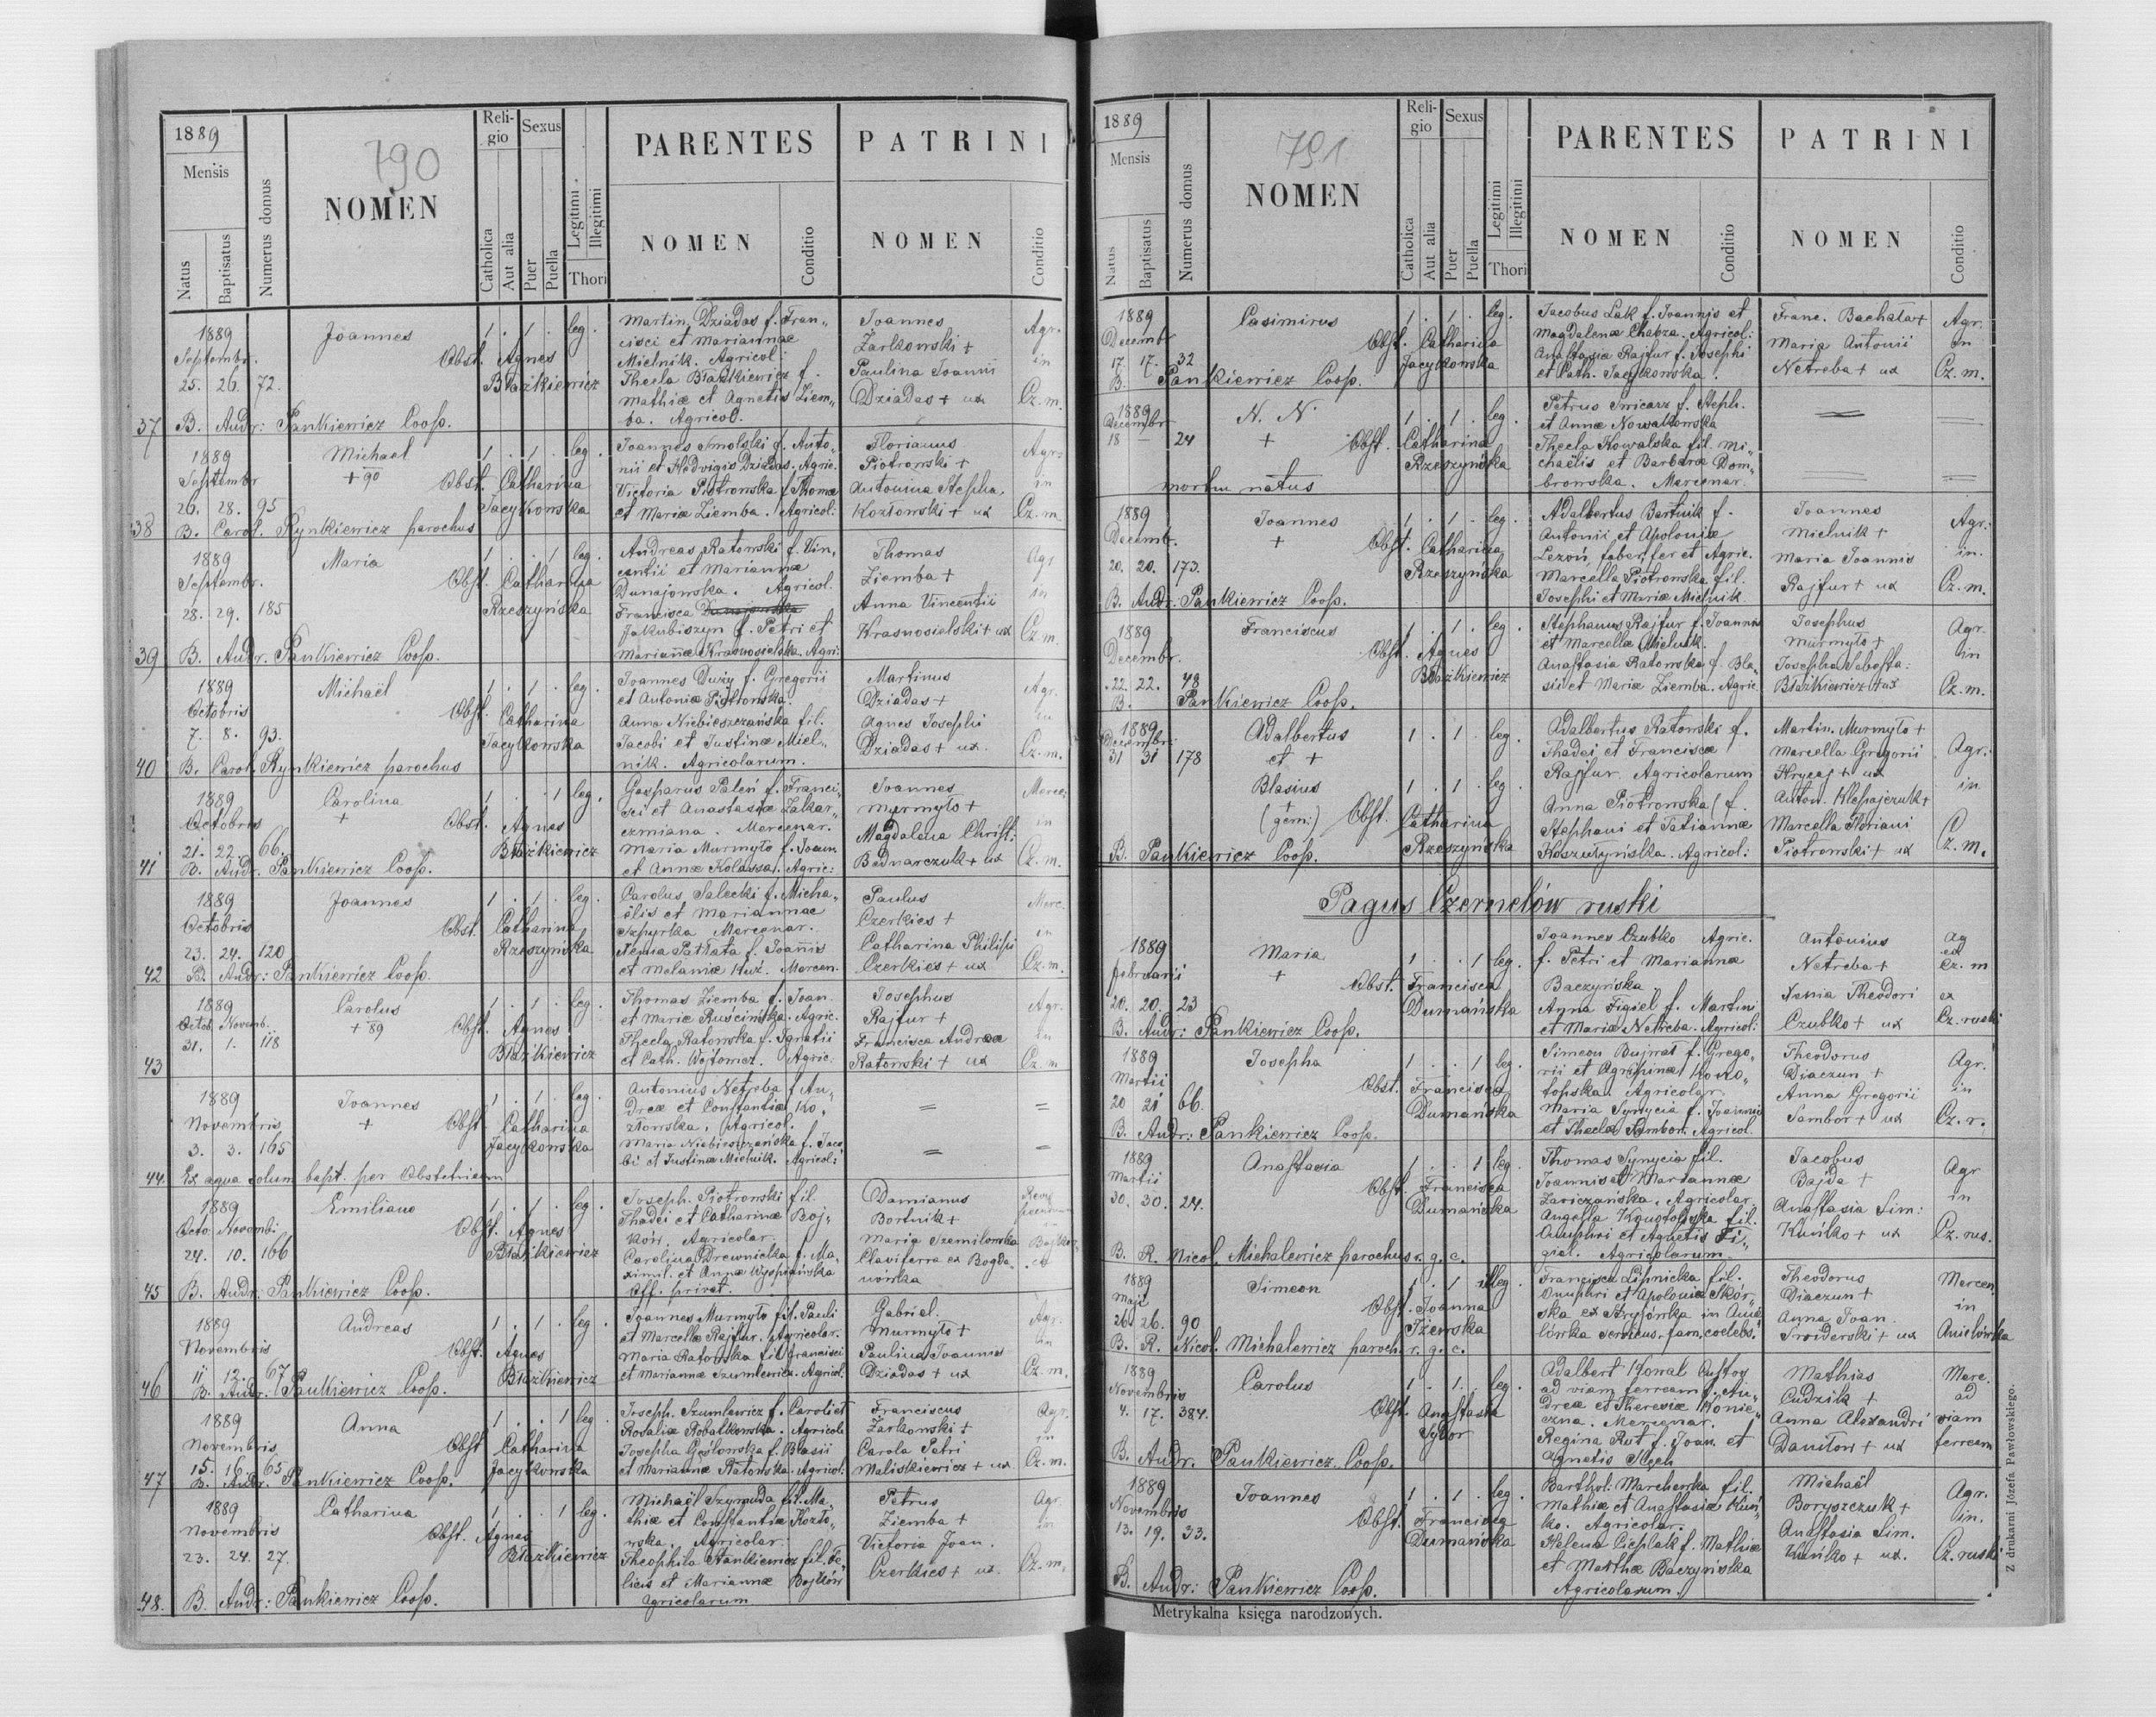 1889
Mensis
Natus
Baptisatus
Numerus domus
790
NOMEN
Religio
Catholica
Aut alia
Sexus
Puer
Puella
Legitimi
Illegitimi
Thori
PARENTES
NOMEN
Conditio
PATRINI
NOMEN
Conditio
1889 Joannes 1 . 1 . leg. Martin Dziadas f. Fran„ Joannes Agr.
Septembr. Obst. Agnes cisci et Mariannae Żarkowski + in
25. 26. 72. Błażkiewicz Mielnik. Agricol: Paulina Joannis Cz. m.
Thecla Błażkiewicz f. Dziadas + ux
Mathiæ et Agnetis Ziem„
ba. Agricol.
37 B. Andr: Pankiewicz Coop.
1889 Michael 1 . 1 . leg. Joannes Smolski f. Anto„ Florianus Agr.
Septembr + 90 Obst. Catharina nii et Hedvigis Dziadas. Agric. Piotrowski + in
26. 28. 95 Jacykowska Victoria Piotrowska f. Thomæ Antonina Stepha. Cz. m.
et Mariæ Ziemba. Agricol: Kozłowski + ux
38 B. Carol. Rynkiewicz parochus
1889 Maria 1 . . 1 leg. Andreas Ratowski f. Vin„ Thomas Agr
Septembr. Obst. Catharina centii et Mariannæ Ziemba + in
28. 29. 185 Rzeszyńska Dunajowska. Agricol. Anna Vincentii Cz. m.
Francisca Krasnosielski + ux
Jakubiszyn f. Petri et
Mariannæ Krasnosielska. Agri:
39 B. Andr. Pankiewicz Coop.
1889 Michaël 1 . 1 . leg. Joannes Duży f. Gregorii Martinus Agr.
Octobris Obst. Catharina et Antoniæ Piotrowska. Dziadas + in
7. 8. 93. Jacykowska Anna Niebieszczańska fil. Agnes Josephi Cz. m.
Jacobi et Justinæ Miel„ Dziadas + ux.
nik. Agricolarum.
40 B. Carol. Rynkiewicz parochus
1889 Carolina 1 . . 1 leg. Gasparus Paleń f. Franci„ Joannes Merce:
Octobris + Obst. Agnes sci et Anastasiæ Zakar„ Murmyło + in
21. 22. 66. Błażkiewicz czmiana. Mercenar. Magdalena Christ: Cz. m.
Maria Murmyło f. Joan. Bednarczuk + ux
et Annæ Kolassa. Agric:
41 B. Andr. Pankiewicz Coop.
1889 Joannes 1 . 1 . leg. Carolus Salecki f. Micha„ Paulus Merc.
Octobris Obst. Catharina ëlis et Mariannae Czerkies + in
23. 24. 120 Rzeszyńska Szpyrka Mercenar. Catharina Philipi Cz. m.
Xenia Patłata f. Joannis Czerkies + ux
et Melaniæ Huź. Mercen.
42 B. Andr: Pankiewicz Coop.
1889 Carolus 1 . 1 . leg. Thomas Ziemba f. Joan. Josephus Agr.
Octob. Novemb. + 89 Obst. Agnes et Mariæ Ruścińska. Agric. Rajfur + in
31. 1. 118 Błażkiewicz Thecla Ratowska f. Ignatii Francisca Andreæ Cz. m
43 et Cath. Wojtowicz. Agric. Ratowski + ux
1889 Joannes 1 . 1 . leg. Antonius Netreba f. An„ = =
Novembris + Obst. Catharina dreæ et Constantiæ Ko„
3. 3. 165 Jacykowska złowska. Agricol.
Maria Niebieszczańska f. Jaco„ = =
bi et Justinæ Mielnik. Agricol:
44. Ex aqua solum bapt. per Obstetricem
1889 Emilianus 1 . 1 . leg. Joseph. Piotrowski fil. Damianus
Octo. Novemb. Obst. Agnes Thadei et Catharinæ Boj„ Bortnik +
24. 10. 166 Błażkiewicz koń. Agricolar. Maria Szemilowska
Carolina Drewnicka f. Ma„ Claviferra ex Bogda„
ximil. et Annæ Wyspiańska nówka
Off. privat.
45 B. Andr: Pankiewicz Coop.
1889 Andreas 1 . 1 . leg. Joannes Murmyło fil. Pauli Gabriel. Agr.
Novembris Obst. Agnes et Marcellæ Rajfur. Agricolar. Murmyło + in
11 12. 67 Błażkiewicz Maria Ratowska fil. Francisci Paulina Joannis Cz. m.
et Mariannæ Szumlewicz. Agricol. Dziadas + ux
46 B. Andr: Pankiewicz Coop.
1889 Anna 1 . . 1 leg. Joseph. Szumlewicz f. Caroli et Franciscus Agr.
Novembris Obst Catharina Rosaliæ Robatkowska. Agricola Żarkowski + in
15. 16. 65 Jacykowska Josepha Gęślowska f. Blasii Carola Petri Cz. m.
et Mariannæ Ratowska. Agricol. Maliskiewicz + ux
47 B. Andr. Pankiewicz Coop.
1889 Catharina 1 . . 1 leg. Michaël Szymuda fil. Ma„ Petrus Agr.
Novembris Obst. Agnes thiæ et Constantiæ Kozło„ Ziemba + in
23. 24. 27. Błażkiewicz wska. Agricolar. Victoria Joan. Cz. m.
Theophila Stankiewicz fil. Fe„ Czerkies + ux.
licis et Mariannæ Bojków
Agricolarum
48. B. Andr: Pankiewicz Coop.
1889
Mensis
Natus
Baptisatus
Numerus domus
791.
NOMEN
Religio
Catholica
Aut alia
Sexus
Puer
Puella
Legitimi
Illegitimi
Thori
PARENTES
NOMEN
Conditio
PATRINI
NOMEN
Conditio
1889 Casimirus 1 . 1 . leg. Jacobus Łak f. Joannis et Franc. Bachata + Agr.
Decembr Obst. Catharina Magdalenæ Chabza. Agricol: Maria Antonii in
17. 17. 32 Jacykowska Anastasia Rajfur f. Josephi Netreba + ux Cz. m.
B. Pankiewicz Coop. et Cath. Jacykowska.
1889 N. N. 1 . 1 . leg. Petrus Swicarz f. Steph. = =
Decembr et Annæ Nowalkowska
18 — 24 + Obst. Catharina Thecla Kowalska fil. Mi„
Rzeszyńska chaëlis et Barbaræ Dom„ = =
mortu natus browska. Mercenar.
1889 Joannes 1 . 1 . leg. Adalbertus Bartnik f. Joannes Agr.:
Decemb. + Obst. Catharina Antonii et Apoloniæ Mielnik + in.
20. 20. 173. Rzeszyńska Lezoń, faber fer et Agric. Maria Joannis Cz. m.
Marcella Piotrowska fil. Rajfur + ux
B. Andr. Pankiewicz Coop. Josephi et Mariæ Mielnik.
1889 Franciscus 1 . 1 . leg. Stephanus Rajfur f. Joannis Josephus Agr.
Decembr. Obst. Agnes et Marcellæ Mielnik. Murmyło + in
22. 22. 48 Błażkiewicz Anastasia Ratowska f. Bla„ Josepha Sebasta: Cz. m.
B. Pankiewicz Coop. sii et Mariæ Ziemba. Agric. Błażkiewicz + ux
1889 Adalbertus 1 . 1 . leg. Adalbertus Ratowski f. Martin. Murmyło + Agr.:
Decembr. et + Thadei et Franciscæ Marcella Gregorii in
31 31 178 Blasius 1 . 1 . leg. Rajfur. Agricolarum Krycaj + ux Cz. m.
+ Anna Piotrowska f. Anton. Klepajczuk +
(gem:) Obst. Catharina Stephani et Tatiannæ Marcella Floriani
B. Pankiewicz Coop. Rzeszyńska Koszutyńska. Agricol: Piotrowski + ux
Pagus Czernelów ruski
1889 Maria 1 . . 1 leg. Joannes Czubko Agric. Antonius Ag
februarii + Obst. Francisca f. Petri et Mariannæ Netreba + ex Cz. m
20. 20. 23 Dumańska Baczyńska Xenia Theodori ex
Anna Figiel f. Martini Czubko + ux Cz. ruski
B. Andr: Pankiewicz Coop. et Mariæ Netreba. Agricol:
1889 Josepha 1 . . 1 leg Simeon Bujnat f. Grego„ Theodorus Agr.
Martii Obst. Francisca rii et Agripinæ Kono„ Diaczun + in
20 21 66. Dumańska topska. Agricolar. Anna Gregorii Cz. r.
Maria Synycia f. Joannis Sambor + ux
B. Andr: Pankiewicz Coop. et Theclæ Sambor. Agricol.
1889 Anastasia 1 . . 1 leg. Thomas Synycia fil. Jacobus Agr
Martii Obst. Francisca Joannis et Mariannæ Bajda + in
30. 30. 24. Dumańska Zariczańska. Agricolar. Anastasia Sim: Cz. rus.
Angella fil. Kuńko + ux
Onuphri et Agnetis Fi„
B. R. Nicol. Michalewicz parochus r. g. c. giel. Agricolarum.
1889 Simeon 1 . 1 . illeg. Francisca Lipnicka fil. Theodorus Mercen.
Maji Obst. Joanna Onuphri et Apoloniæ Skór„ Diaczun + in
26 26. 90 Iżewska ska ex Stryjówka in Anie„ Anna Joan. Anielówka
B. R. Nicol. Michalewicz paroch. r. g. c. lówka servicus. fam. coelebs. Swiderski + ux
1889 Carolus 1 . 1 . leg. Adalbert Kowal Custos Mathias Merc.
Novembris Obst. Anastasia ad viam ferream f. An„ Cudzik + ad
4. 17. 384. Sydor dreæ et Theresiæ Konie„ Anna Alexandri viam
czna. Mercenar. Daniłow + ux ferream
Regina Rut f. Joan. et
B. Andr. Pankiewicz Coop. Agnetis Klęch
1889 Joannes 1 . 1 . leg. Barthol. Marchewka fil. Michaël Agr.
Novembris Obst. Francisca Mathiæ et Anastasiæ Kuń„ Boryszczuk + in.
13. 19. 33. Dumańska ko. Agricolar. Anastasia Sim. Cz. ruski
Helena Cieplak f. Mathiæ Kuńko + ux.
et Marthæ Baczyńska
B. Andr: Pankiewicz Coop. Agricolarum.
Metrykalna księga narodzonych.
Z drukarni Józefa Pawłowskiego.